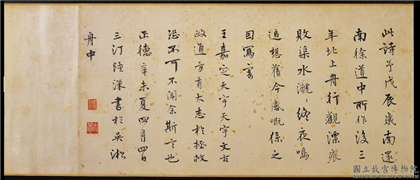 此詩予戊辰歲南還
南徐道中所作後三
年北上舟行觀漂
敗渠水瀧瀧終夜鳴
追想舊今感慨係之
因寫寄
王嘉定天宇天宇文古
政道方有大志於拯救
恐不可不聞余斯言也
正德辛未夏四月四日
三汀陸深書於吳淞
舟中
國立故宮博物院